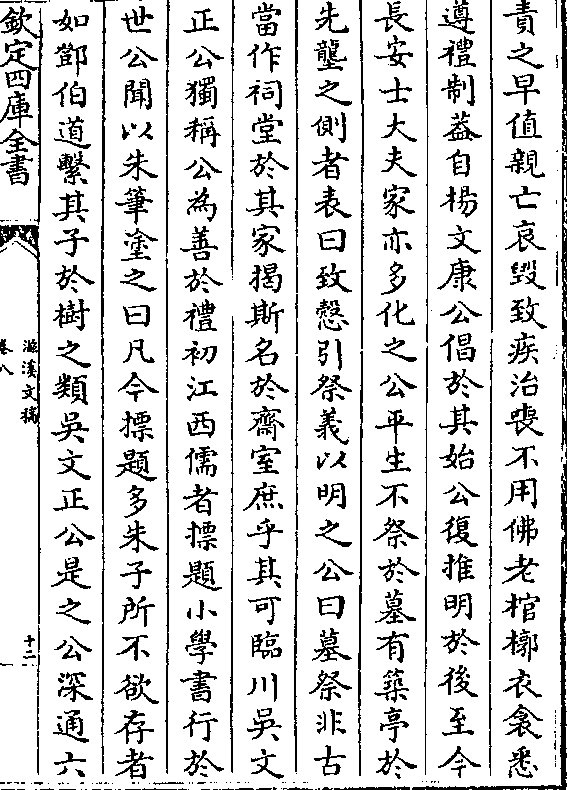 責之早值親亡哀毀致疾治喪不用佛老棺槨衣衾悉
遵禮制葢自楊文康公倡於其始公復推明於後至今
長安士大夫家亦多化之公平生不祭於墓有築亭於
先壟之側者表曰致慤引祭義以明之公曰墓祭非古
當作祠堂於其家揭斯名於齋室庶乎其可臨川吳文
正公獨稱公為善於禮初江西儒者摽題小學書行於
世公聞以朱筆塗之曰凡今摽題多朱子所不欲存者
如鄧伯道繫其子於樹之類吳文正公是之公深通六
欽定四庫全書
滋溪文稿
卷八
十二